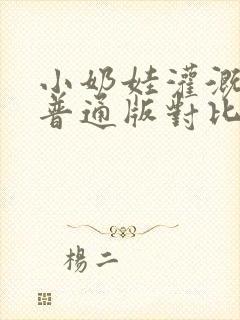 小奶娃灌溉
普通版對比
楊二